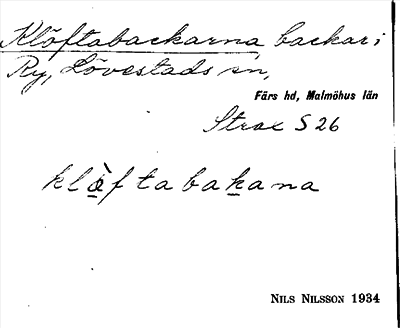 Klöftabackarna, backar i
Ry, Lövestads sn,
Färs hd, Malmöhus län
Strax S 26
klø̀ftabakana
NILS NILSSON 1934